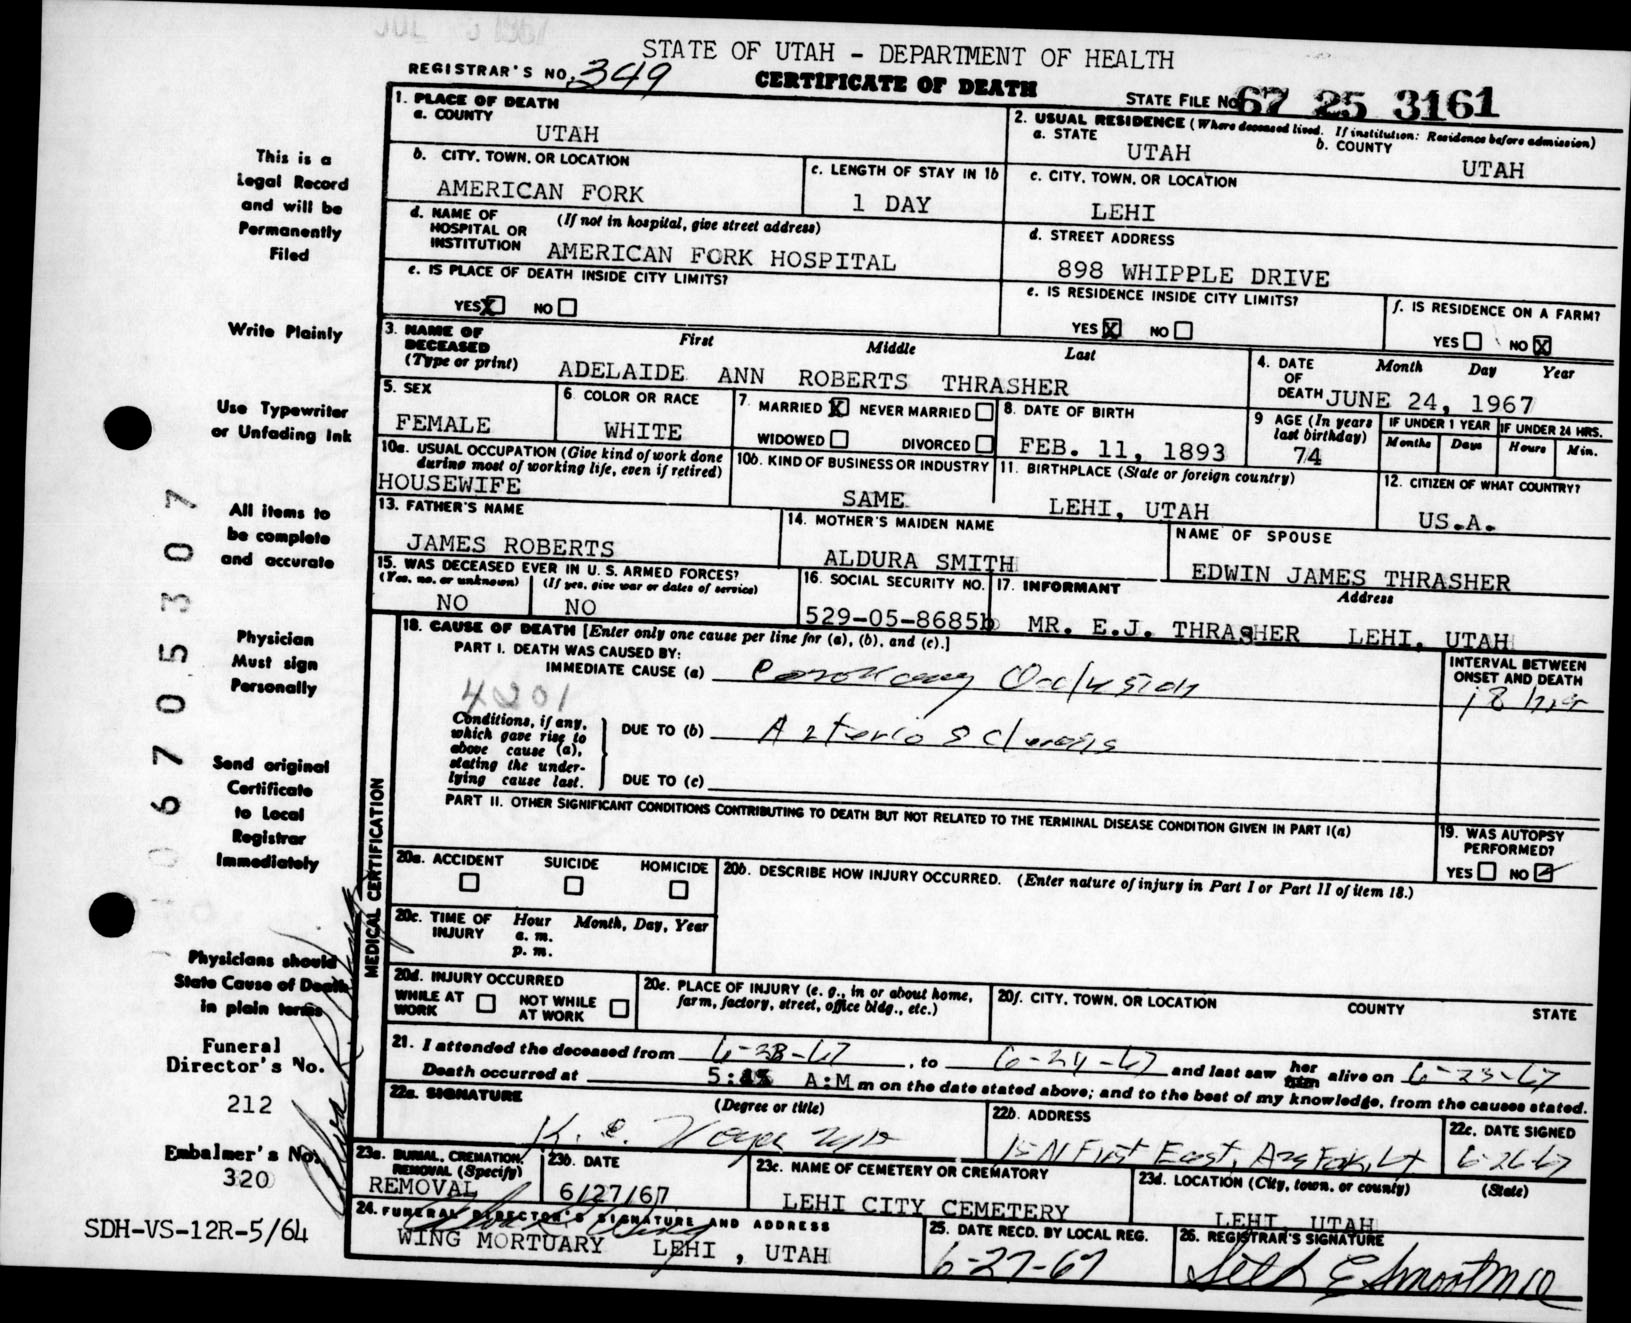 STATE OF UTAH - DEPARTMENT OF HEALTH
REGISTRAR'S NO. 349
CERTIFICATE OF DEATH
STATE FILE NO. 67 25 3161
1. PLACE OF DEATH
a. COUNTY
UTAH
2. USUAL RESIDENCE (Where deceased lived. If institution: Residence before admission)
a. STATE
UTAH
b. COUNTY
UTAH
b. CITY, TOWN, OR LOCATION
AMERICAN FORK
c. LENGTH OF STAY IN 1b
1 DAY
c. CITY, TOWN, OR LOCATION
LEHI
d. NAME OF HOSPITAL OR INSTITUTION
(If not in hospital, give street address)
AMERICAN FORK HOSPITAL
d. STREET ADDRESS
898 WHIPPLE DRIVE
e. IS PLACE OF DEATH INSIDE CITY LIMITS?
YES X NO
e. IS RESIDENCE INSIDE CITY LIMITS?
YES X NO
f. IS RESIDENCE ON A FARM?
YES NO X
3. NAME OF DECEASED (Type or print)
First Middle Last
ADELAIDE ANN ROBERTS THRASHER
4. DATE OF DEATH
Month Day Year
JUNE 24, 1967
5. SEX
FEMALE
6. COLOR OR RACE
WHITE
7. MARRIED X NEVER MARRIED
WIDOWED DIVORCED
8. DATE OF BIRTH
FEB. 11, 1893
9 AGE (In years last birthday)
74
IF UNDER 1 YEAR
Months Days
IF UNDER 24 HRS.
Hours Min.
10a. USUAL OCCUPATION (Give kind of work done during most of working life, even if retired)
HOUSEWIFE
10b. KIND OF BUSINESS OR INDUSTRY
SAME
11. BIRTHPLACE (State or foreign country)
LEHI, UTAH
12. CITIZEN OF WHAT COUNTRY?
US.A.
13. FATHER'S NAME
JAMES ROBERTS
14. MOTHER'S MAIDEN NAME
ALDURA SMITH
NAME OF SPOUSE
EDWIN JAMES THRASHER
15. WAS DECEASED EVER IN U.S. ARMED FORCES?
(Yes, no, or unknown) (If yes, give war or dates of service)
NO NO
16. SOCIAL SECURITY NO.
529-05-8685b
17. INFORMANT Address
MR. E.J. THRASHER LEHI, UTAH
MEDICAL CERTIFICATION
18. CAUSE OF DEATH [Enter only one cause per line for (a), (b), and (c).]
PART I. DEATH WAS CAUSED BY:
IMMEDIATE CAUSE (a) Coronary Occlusion
INTERVAL BETWEEN ONSET AND DEATH
18 hrs
4201
Conditions, if any, which gave rise to above cause (a), stating the underlying cause last.
DUE TO (b) Arteriosclerosis
DUE TO (c)
PART II. OTHER SIGNIFICANT CONDITIONS CONTRIBUTING TO DEATH BUT NOT RELATED TO THE TERMINAL DISEASE CONDITION GIVEN IN PART I(a)
19. WAS AUTOPSY PERFORMED?
YES NO
20a. ACCIDENT SUICIDE HOMICIDE
20b. DESCRIBE HOW INJURY OCCURRED. (Enter nature of injury in Part I or Part II of item 18.)
20c. TIME OF INJURY
Hour Month, Day, Year
a. m.
p. m.
20d. INJURY OCCURRED
WHILE AT WORK NOT WHILE AT WORK
20e. PLACE OF INJURY (e. g., in or about home, farm, factory, street, office bldg., etc.)
20f. CITY, TOWN, OR LOCATION COUNTY STATE
21. I attended the deceased from 6-23-67, to 6-24-67 and last saw her him alive on 6-23-67
Death occurred at 5: A:M m on the date stated above; and to the best of my knowledge, from the causes stated.
22a. SIGNATURE (Degree or title)
K. E.
22b. ADDRESS
15 N First East, Am Fork, Ut
22c. DATE SIGNED
6-26-67
23a. BURIAL, CREMATION, REMOVAL (Specify)
REMOVAL
23b. DATE
6/27/67
23c. NAME OF CEMETERY OR CREMATORY
LEHI CITY CEMETERY
23d. LOCATION (City, town, or county) (State)
LEHI, UTAH
24. FUNERAL DIRECTOR'S SIGNATURE AND ADDRESS
WING MORTUARY LEHI, UTAH
25. DATE RECD. BY LOCAL REG.
6-27-67
26. REGISTRAR'S SIGNATURE
Seth E Smoot MD
This is a
Legal Record
and will be
Permanently
Filed
Write Plainly
Use Typewriter
or Unfading Ink
All items to
be complete
and accurate
Physician
Must sign
Personally
Send original
Certificate
to Local
Registrar
Immediately
Physicians should
State Cause of Death
in plain terms
Funeral
Director's No.
212
Embalmer's No.
320
SDH-VS-12R-5/64